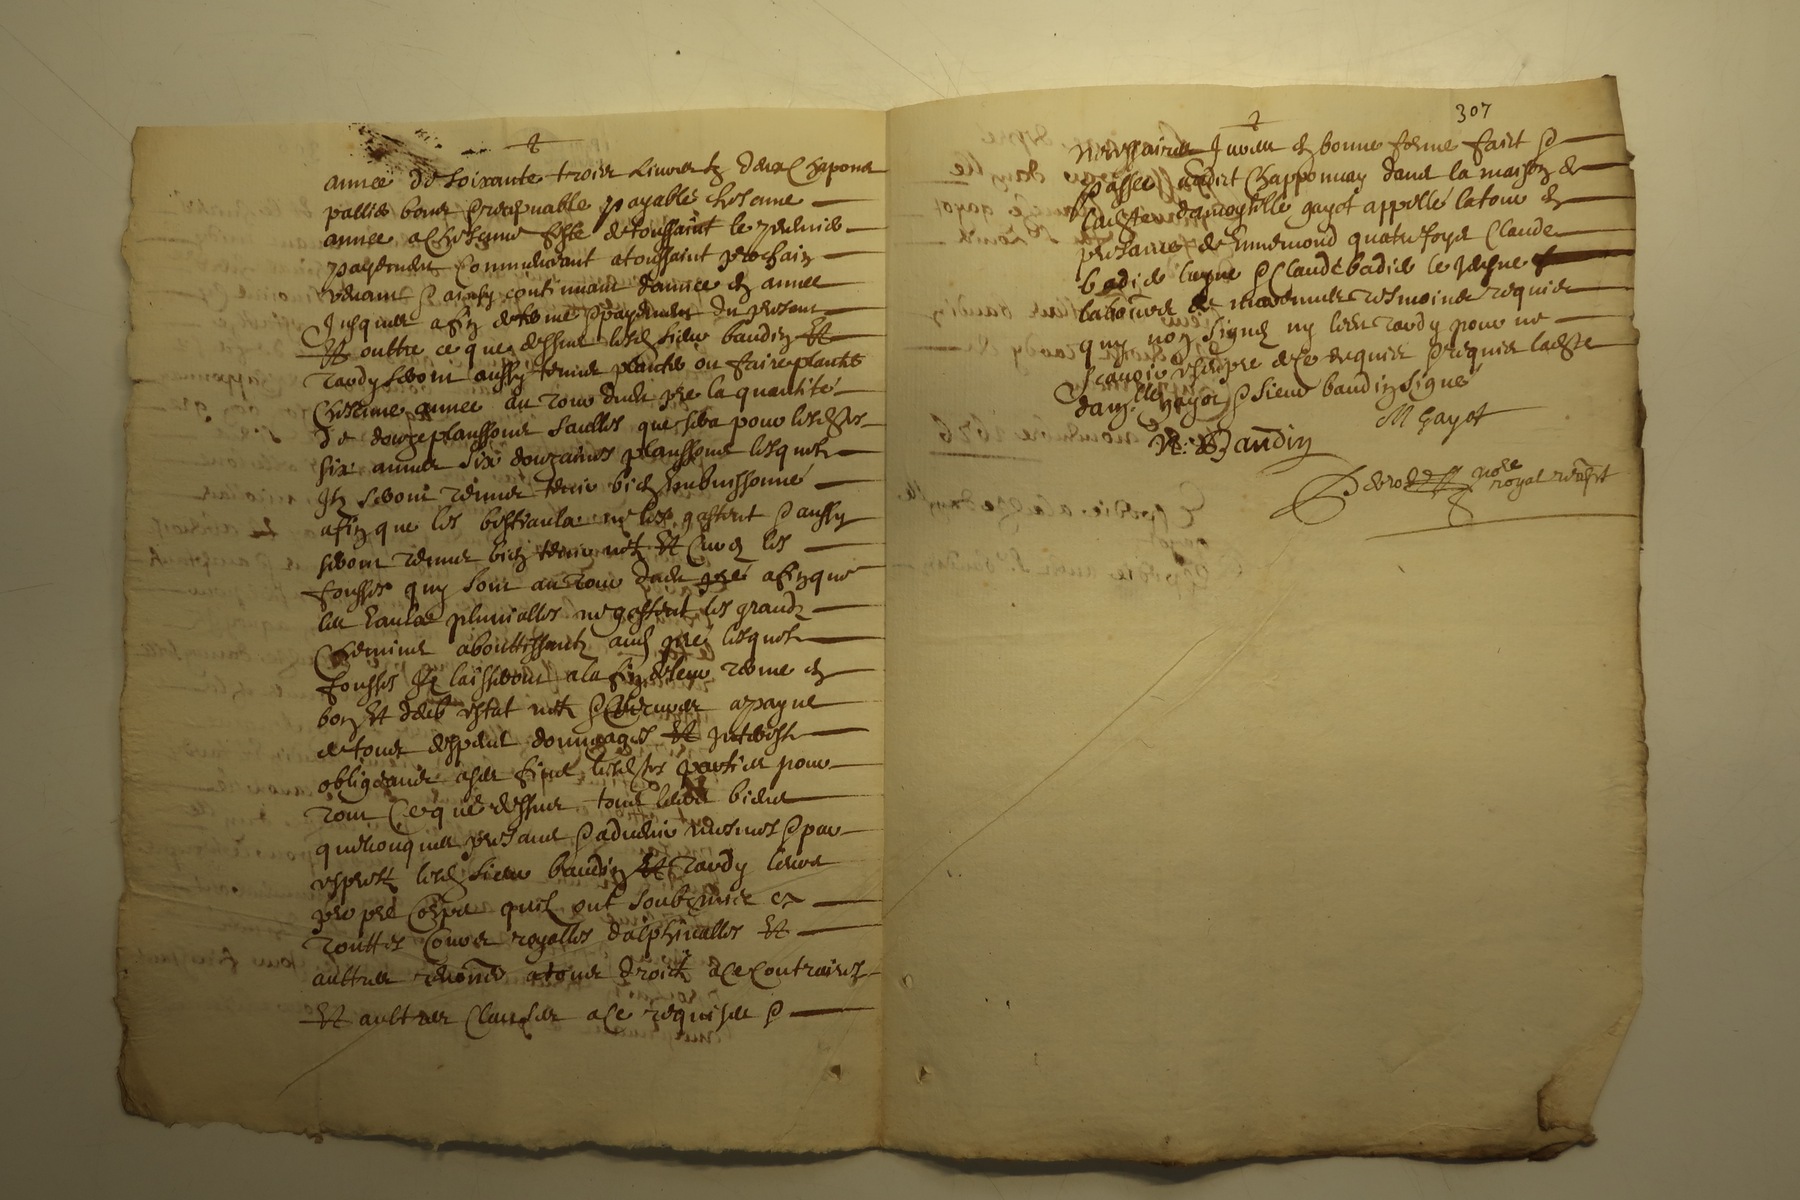 annee de soixante trois livres & deux chapons
pallies bons & recepvable payables chescune
annee a chescune feste de toussaint le premier
payement commencant a toussaint prochain
venant & ainsy continuant dannee en annee
Jusques a fin de terme & payement du present
Et outtre ce que dessus lesd sieur baudin Et
tardy seront aussy tenus planter ou faire planter
chescune annee au tour dudit pre la quantité
de douze planssons saulles que sera pour lesdites
six annees six douzaines planssons lesquels
Ils seront tenus tenir bien embuissonné
afin que les bestiaulx ne les gastent & aussy
seront tenus bien tenir nets Et curez les
fousses quy sont au tour dudit pré afin que
les eaulx pluvialles ne gastent les grands
chemins abouttissants aud pré lesquels
fousses Ils laisseront a la fin de leur terme en
bon Et deub estat nets & curez a payne
de tous despens dommages Et Interests
obligeants a ces fins lesdites parties pour
tout ce que dessus tous leurs biens
quelconques presants & advenir mesmes & par
exprest lesd sieur baudin Et tardy leurs
propre corps quils ont soubzmis a
touttes cours royalles dalphinalles Et
aultres renoncé a tous droicts a ce contraires
Et aultres clauses a ce requises &
307
necessaires Juree en bonne forme faict &
passé audict Chapponnay dans la maison de
ladite damoyselle gayot appellé la tour en
presance de Ennemond quatrefoys Claude
badie layne & Claude badie le jeusne
laboureur tesmoings requis
quy nont signé ny led tardy pour ne
scavoir escripre de ce enquis & requis ladite
damlle gayot & sieur baudin signé
M Gayot
N. Baudin
nore
royal recepvt